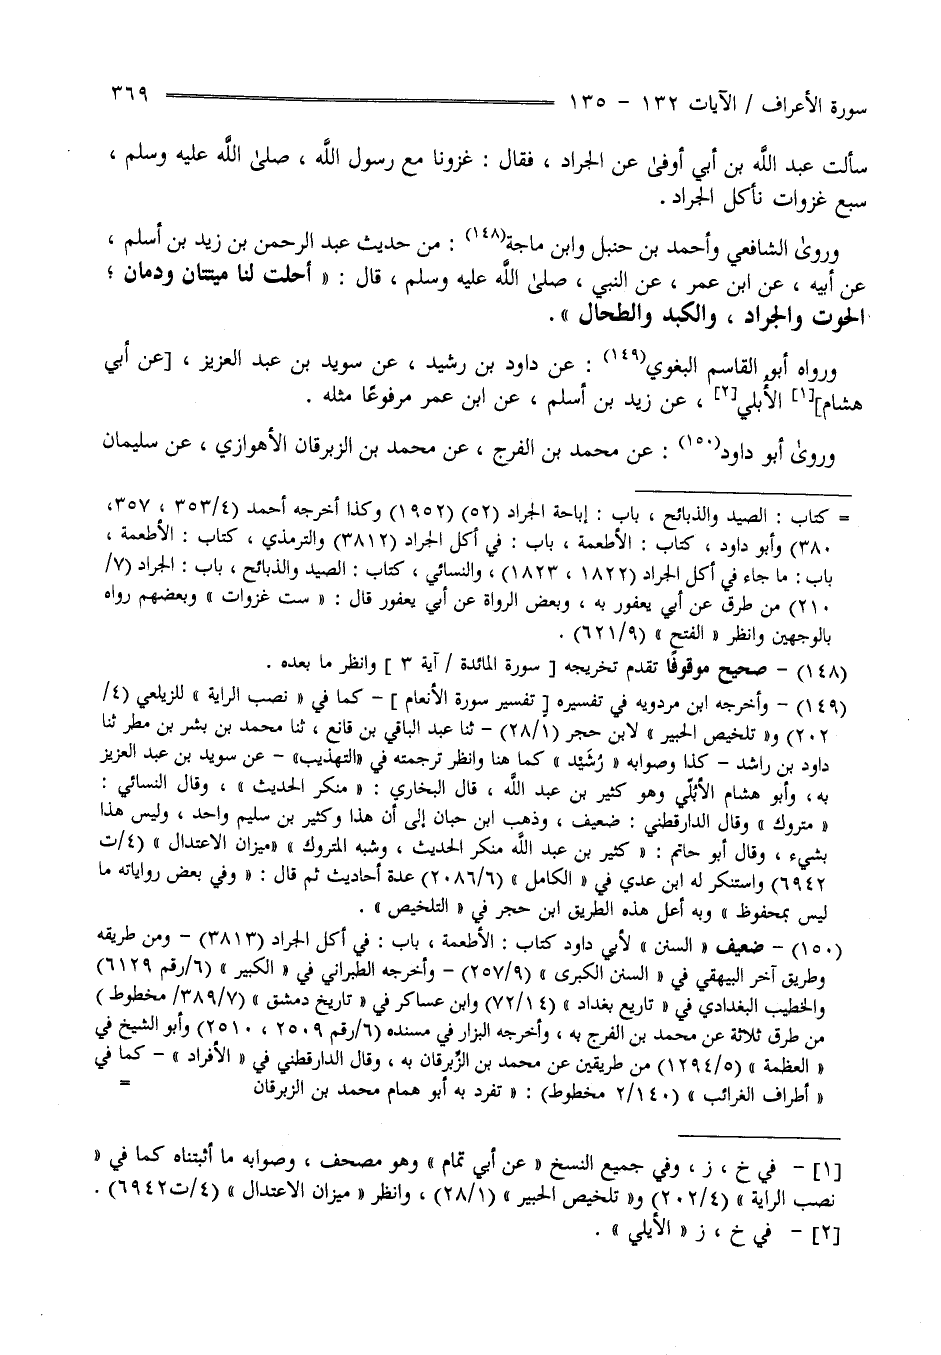 سورة الأعراف / الآيات ١٣٢ - ١٣٥ ٣٦٩
سألت عبد اللَّه بن أبي أوفىٰ عن الجراد ، فقال : غزونا مع رسول اللَّه ، صلىٰ اللَّه عليه وسلم ،
سبع غزوات نأكل الجراد .
وروىٰ الشافعي وأحمد بن حنبل وابن ماجة(١٤٨) : من حديث عبد الرحمن بن زيد بن أسلم ،
عن أبيه ، عن ابن عمر ، عن النبي ، صلىٰ اللَّه عليه وسلم ، قال : « أحلت لنا ميتتان ودمان ؛
الحوت والجراد ، والكبد والطحال » .
ورواه أبو القاسم البغوي(١٤٩) : عن داود بن رشيد ، عن سويد بن عبد العزيز ، [عن أبي
هشام][١] الأبلي[٢] ، عن زيد بن أسلم ، عن ابن عمر مرفوعًا مثله .
وروىٰ أبو داود(١٥٠) : عن محمد بن الفرج ، عن محمد بن الزبرقان الأهوازي ، عن سليمان
= كتاب : الصيد والذبائح ، باب : إباحة الجراد (٥٢) (١٩٥٢) وكذا أخرجه أحمد (٣٥٣/٤ ، ٣٥٧،
٣٨٠) وأبو داود ، كتاب : الأطعمة ، باب : في أكل الجراد (٣٨١٢) والترمذي ، كتاب : الأطعمة ،
باب : ما جاء في أكل الجراد (١٨٢٢ ، ١٨٢٣) ، والنسائي ، كتاب : الصيد والذبائح ، باب : الجراد (٧/
٢١٠) من طرق عن أبي يعفور به ، وبعض الرواة عن أبي يعفور قال : « ست غزوات » وبعضهم رواه
بالوجهين وانظر « الفتح » (٦٢١/٩) .
(١٤٨) - صحيح موقوفًا تقدم تخريجه [ سورة المائدة / آية ٣ ] وانظر ما بعده .
(١٤٩) - وأخرجه ابن مردويه في تفسيره [ تفسير سورة الأنعام ] - كما في « نصب الراية » للزيلعي (٤/
٢٠٢) و« تلخيص الحبير » لابن حجر (٢٨/١) - ثنا عبد الباقي بن قانع ، ثنا محمد بن بشر بن مطر ثنا
داود بن راشد - كذا وصوابه « رُشَيْد » كما هنا وانظر ترجمته في «التهذيب» - عن سويد بن عبد العزيز
به ، وأبو هشام الأُبُلّي وهو كثير بن عبد اللَّه ، قال البخاري : « منكر الحديث » ، وقال النسائي :
« متروك » وقال الدارقطني : ضعيف ، وذهب ابن حبان إلى أن هذا وكثير بن سليم واحد ، وليس هذا
بشيء ، وقال أبو حاتم : « كثير بن عبد اللَّه منكر الحديث ، وشبه المتروك » «ميزان الاعتدال » (٤/ت
٦٩٤٢) واستنكر له ابن عدي في « الكامل » (٢٠٨٦/٦) عدة أحاديث ثم قال : « وفي بعض رواياته ما
ليس بمحفوظ » وبه أعل هذه الطريق ابن حجر في « التلخيص » .
(١٥٠) - ضعيف « السنن » لأبي داود كتاب : الأطعمة ، باب : في أكل الجراد (٣٨١٣) - ومن طريقه
وطريق آخر البيهقي في « السنن الكبرى » (٢٥٧/٩) - وأخرجه الطبراني في « الكبير » (٦/رقم ٦١٢٩)
والخطيب البغدادي في « تاريع بغداد » (٧٢/١٤) وابن عساكر في « تاريخ دمشق » (٣٨٩/٧/ مخطوط )
من طرق ثلاثة عن محمد بن الفرج به ، وأخرجه البزار في مسنده (٦/رقم ٢٥٠٩ ، ٢٥١٠) وأبو الشيخ في
« العظمة » (١٢٩٤/٥) من طريقين عن محمد بن الزِّبرقان به ، وقال الدارقطني في « الأفراد » - كما في
« أطراف الغرائب » (٢/١٤٠ مخطوط) : « تفرد به أبو همام محمد بن الزبرقان =
[١] - في خ ، ز ، وفي جميع النسخ « عن أبي تمام » وهو مصحف ، وصوابه ما أثبتناه كما في «
نصب الراية » (٢٠٢/٤) و« تلخيص الحبير » (٢٨/١) ، وانظر « ميزان الاعتدال » (٤/ت٦٩٤٢) .
[٢] - في خ ، ز « الأيلي » .